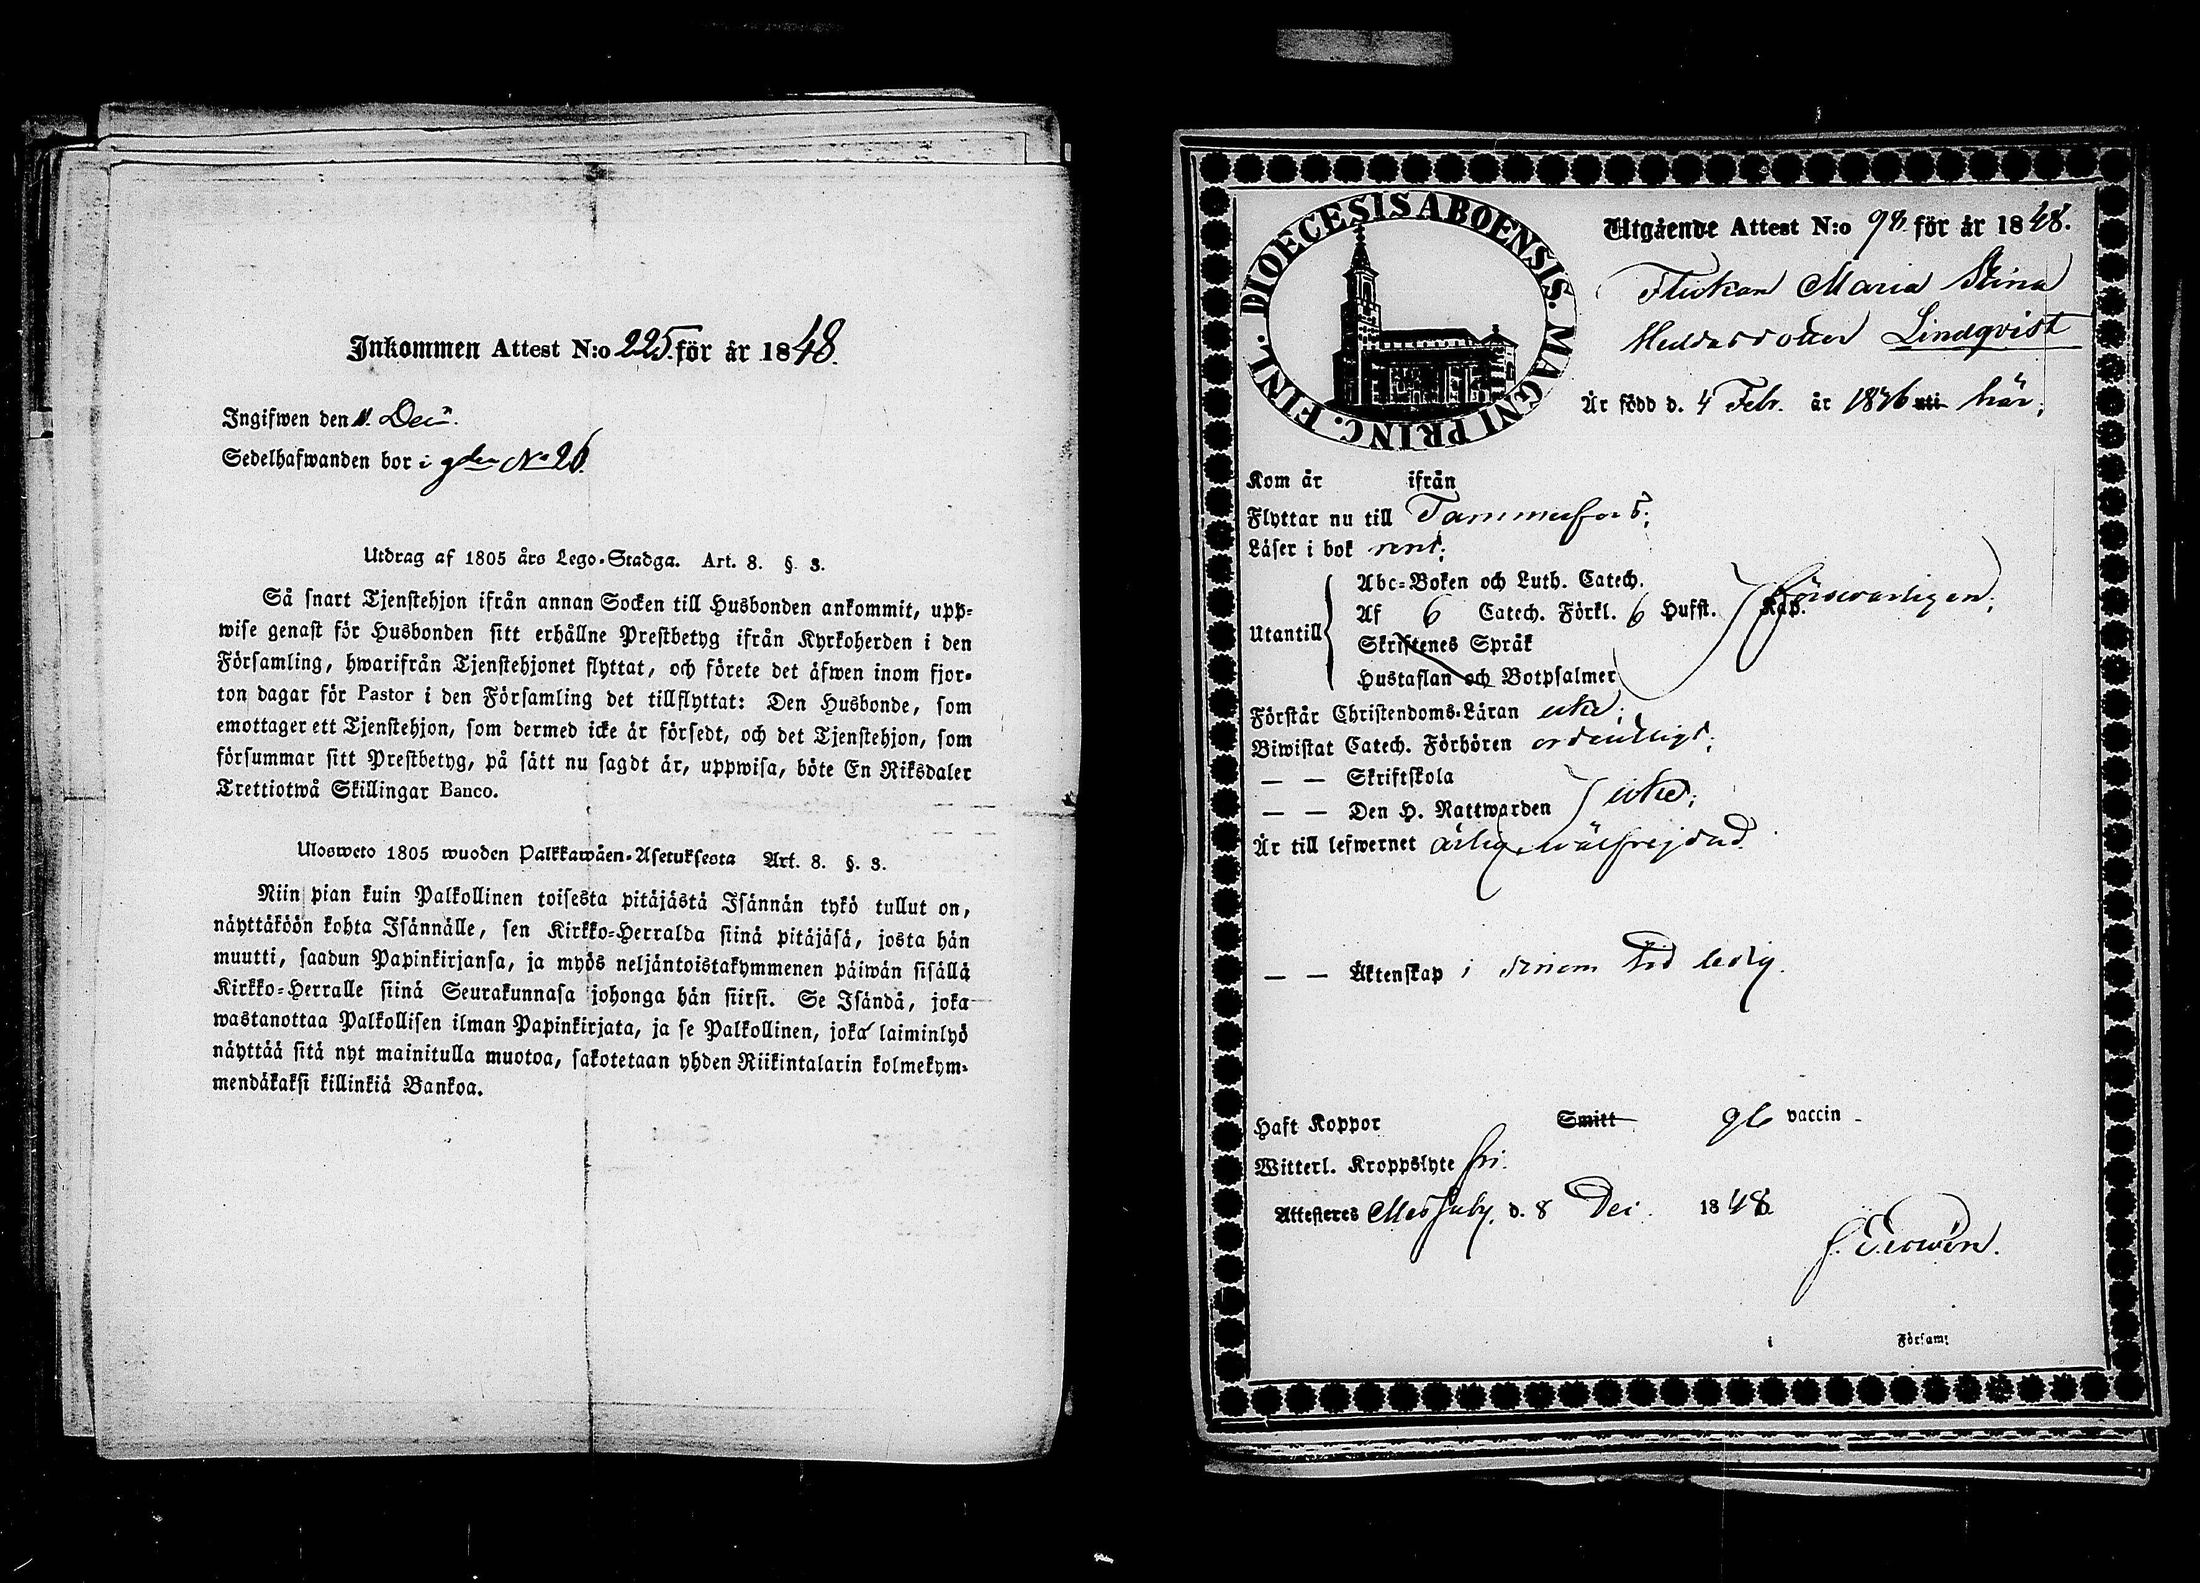 Inkommen Attest N:o 225. för år 1848.
Ingifwen den 11. Dec.
Sedelhafwanden bor i gden No 26
Utdrag af 1805 års Lego-Stadga. Art. 8. §. 3.
Så snart Tjenstehjon ifrån annan Socken till Husbonden ankommit, upp-
wise genast för Husbonden sitt erhållne Prestbetyg ifrån Kyrkoherden i den
Församling, hwarifrån Tjenstehjonet flyttat, och förete det äfwen inom fjor-
ton dagar för Pastor i den Församling det tillflyttat: Den Husbonde, som
emottager ett Tjenstehjon, som dermed icke är försedt, och det Tjenstehjon, som
försummar sitt Prestbetyg, på sätt nu sagdt är, uppwisa, böte En Riksdaler
Trettiotwå Skillingar Banco.
Ulosweto 1805 wuoden Palkkawäen-Asetuksesta Art. 8. §. 3.
Niin pian kuin Palkollinen toisesta pitäjästä Isännän tykö tullut on,
näyttäköön kohta Isännälle, sen Kirkko-Herralda siinä pitäjäsä, josta hän
muutti, saadun Papinkirjansa, ja myös neljäntoistakymmenen päiwän sisällä
Kirkko-Herralle siinä Seurakunnasa johonga hän siirsi. Se Isändä, joka
wastanottaa Palkollisen ilman Papinkirjata, ja se Palkollinen, joka laiminlyö
näyttää sitä nyt mainitulla muotoa, sakotetaan yhden Riikintalarin kolmekym-
mendäkaksi killinkiä Bankoa.
DIOECESIS ABOENSIS. MAGNI PRINC. FINL.
Utgående Attest N:o 98 för år 1848.
Flickan Maria Stina
Lindqvist
Är född d. 4 Febr. år 1836 uti här;
Kom år ifrån
Flyttar nu till Tammerfors;
Läser i bok rent;
Abc-Boken och Luth. Catech.
Utantill Af 6 Catech. Förkl. 6 Hufst. Kap. försvarligen;
Skriftenes Språk
Hustaflan och Botpsalmer
Förstår Christendoms-Läran icke;
Biwistat Catech. Förhören ordentligt;
— — Skriftskola
— — Den H. Nattwarden icke;
Är till lefwernet ärlig, wälfrejdad.
— — Äktenskap i sinom tid ledig.
Haft Koppor Smitt vaccin
Witterl. Kroppslyte fri.
Attesteres Messuby. d. 8 Dec. 1848.
i Församl